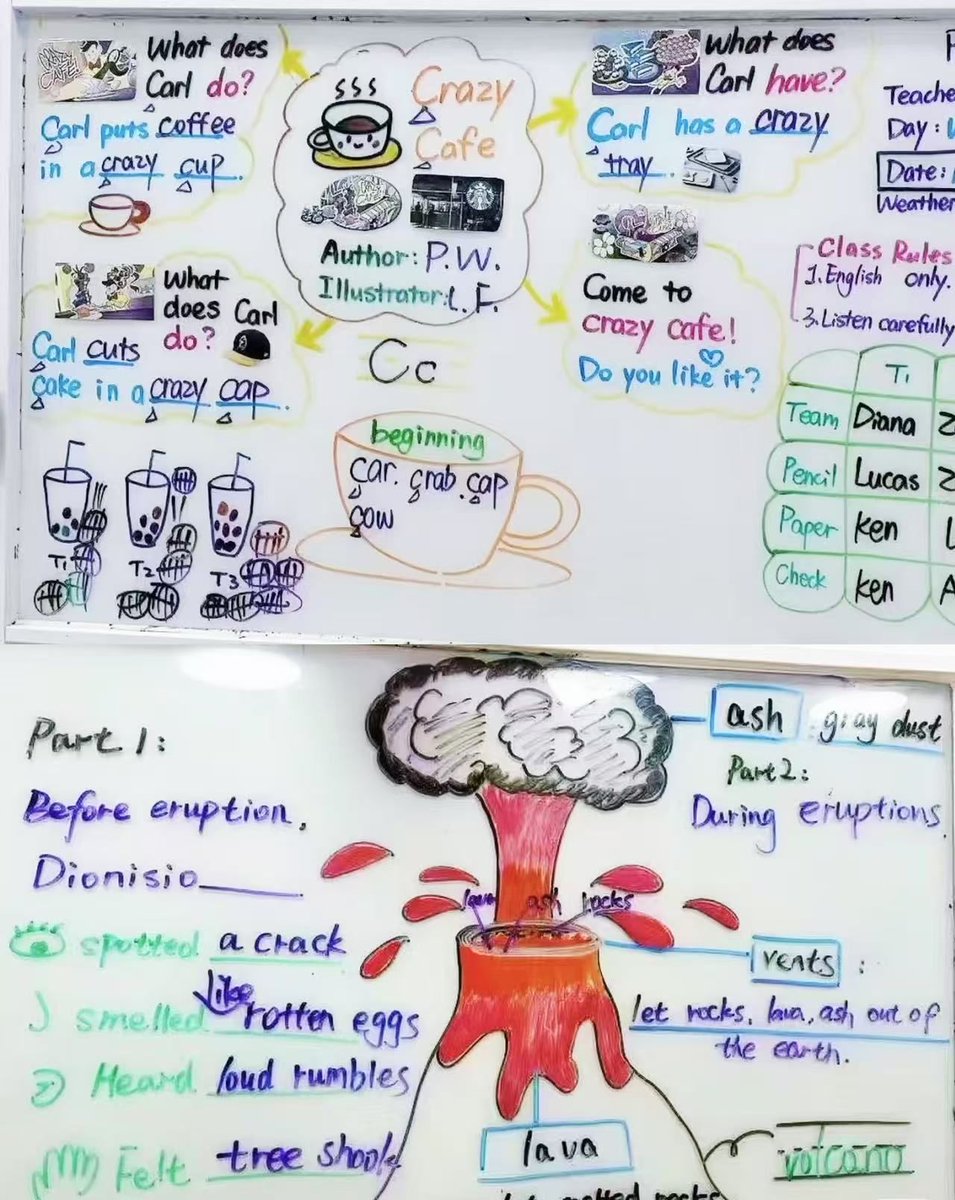 What does
Carl do?
Carl puts coffee
in a crazy cup.
Crazy
Cafe
Author: P.W.
Illustrator: L.F.
What does
Carl have?
Carl has a crazy
tray.
Come to
crazy cafe!
Do you like it?
What
does Carl
do?
Carl cuts
cake in a crazy cap.
Cc
beginning
car. crab. cap
cow
T1
T2
T3
Teache
Day:
Date:
Weather
Class Rules
1. English only.
3. Listen carefully
T1
Team Diana
Pencil Lucas
Paper Ken
Check Ken
Part 1:
Before eruption,
Dionisio
spotted a crack
smelled like rotten eggs
Heard loud rumbles
Felt tree shook
ash: gray dust
Part 2:
During eruptions
lava ash rocks
vents:
let rocks, lava, ash out of
the earth.
lava
volcano